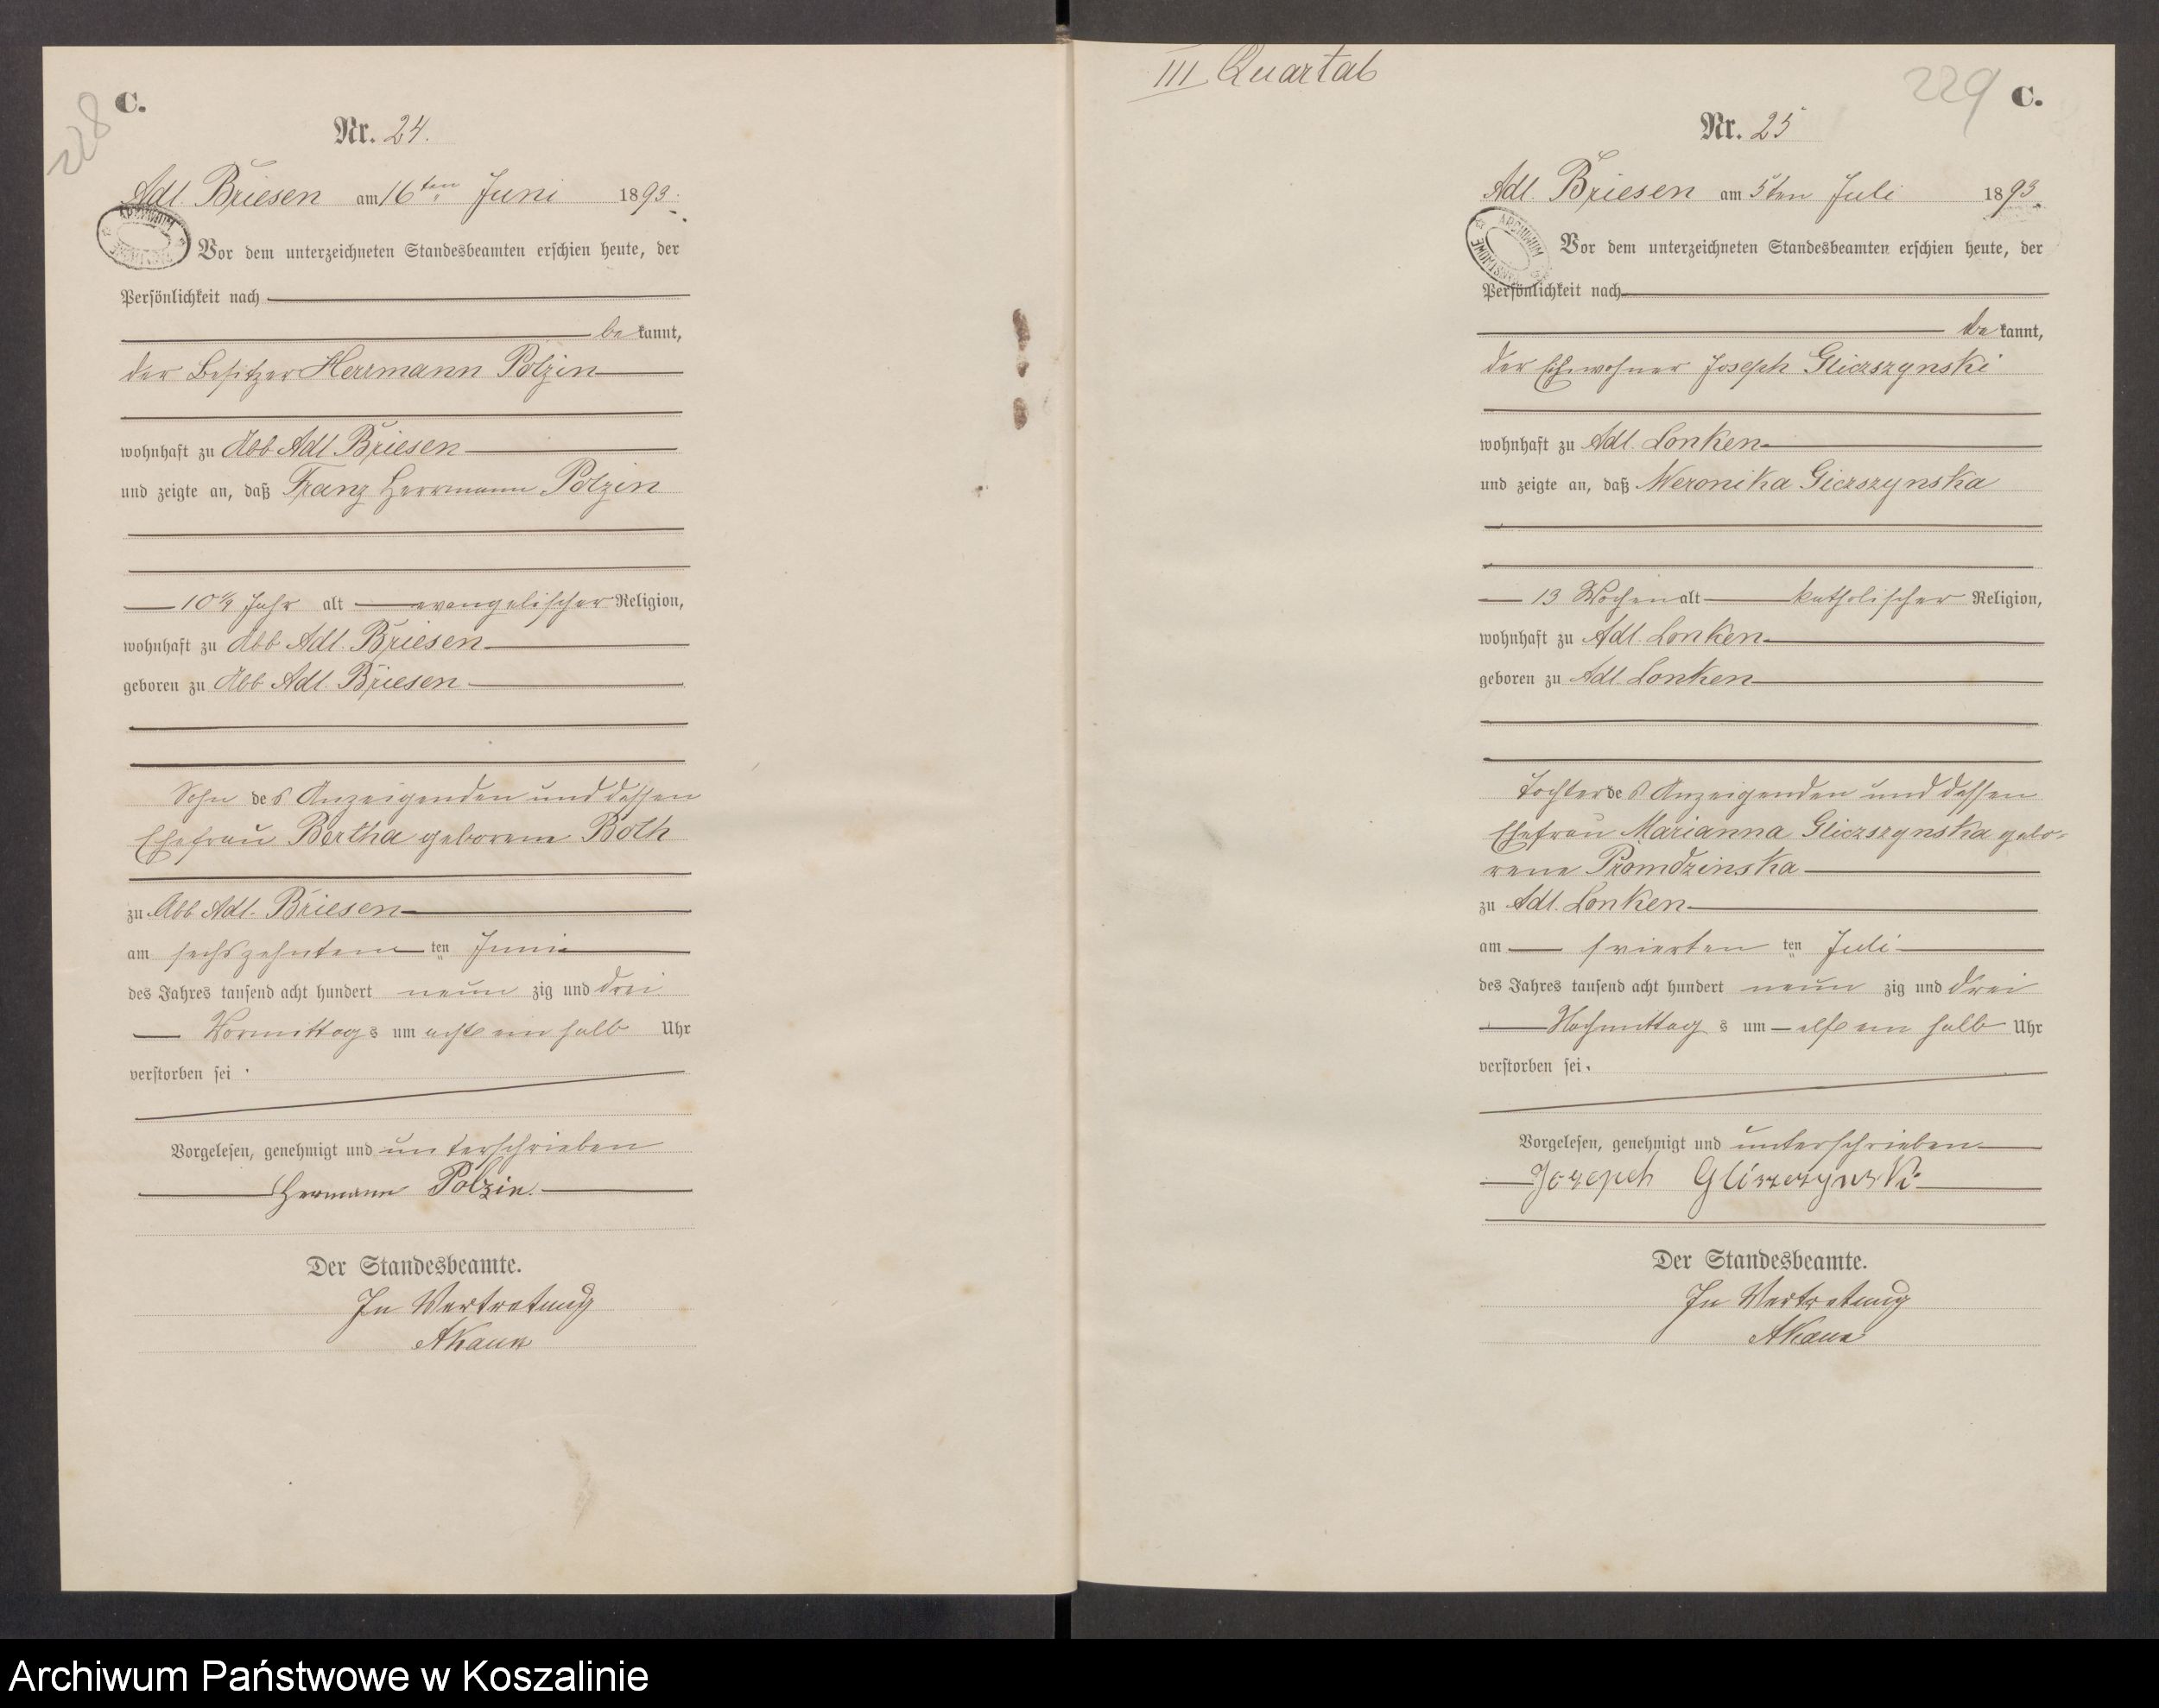 228
C.
Nr. 24.
Adl. Briesen am 16ten Juni 1893.
Vor dem unterzeichneten Standesbeamten erschien heute, der
Persönlichkeit nach
bekannt,
der Besitzer Herrmann Polzin
wohnhaft zu Abb Adl. Briesen
und zeigte an, daß Franz Herrmann Polzin
10 Jahr alt evangelischer Religion,
wohnhaft zu Abb Adl. Briesen
geboren zu Abb Adl. Briesen
Sohn des Anzeigenden und dessen
Ehefrau Bertha geborene Both
zu Abb Adl. Briesen
am sechszehnten ten Juni
des Jahres tausend acht hundert neun zig und drei
Vormittags um acht ein halb Uhr
verstorben sei.
Vorgelesen, genehmigt und unterschrieben
Hermann Polzin.
Der Standesbeamte.
In Vertretung
III Quartal
229
C.
Nr. 25
Adl. Briesen am 5ten Juli 1893.
Vor dem unterzeichneten Standesbeamten erschien heute, der
Persönlichkeit nach
bekannt,
der Einwohner Joseph Gliczszynski
wohnhaft zu Adl. Lonken
und zeigte an, daß Weronika Giczszynska
13 Wochen alt katholischer Religion,
wohnhaft zu Adl. Lonken
geboren zu Adl. Lonken
Tochter des Anzeigenden und dessen
Ehefrau Marianna Gliczszynska gebo-
rene Promdzinska
zu Adl. Lonken
am vierten ten Juli
des Jahres tausend acht hundert neun zig und drei
Nachmittags um elf ein halb Uhr
verstorben sei.
Vorgelesen, genehmigt und unterschrieben
Der Standesbeamte.
In Vertretung
Archiwum Państwowe w Koszalinie